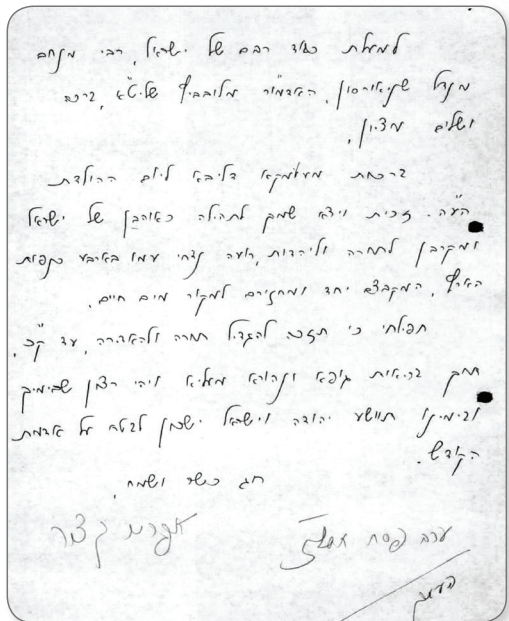 למעלת כבוד רבם של ישראל, רבי מנחם
מנדל שניאורסון, האדמו"ר מלובביץ שליט"א, ברכה
ושלום מציון,
ברכות מעומקא דליבא ליום ההולדת
זכית ויצא שמך לתהילה כאוהבן של ישראל
ומקרבן לתורה וליהדות, רועה נדחי עמו בארבע כנפות
הארץ, המקבצם יחד ומחזירם למקור מים חיים.
תפילתי כי תזכה להגדיל תורה ולהאדירה, עד ק"כ,
מתוך בריאות גופא ונהורא מעליא ויהי רצון שבימיך
ובימינו תיוושע יהודה וישראל ישכון לבטח על אדמת
הקודש.
חג כשר ושמח,
אפרים קציר
ערב פסח